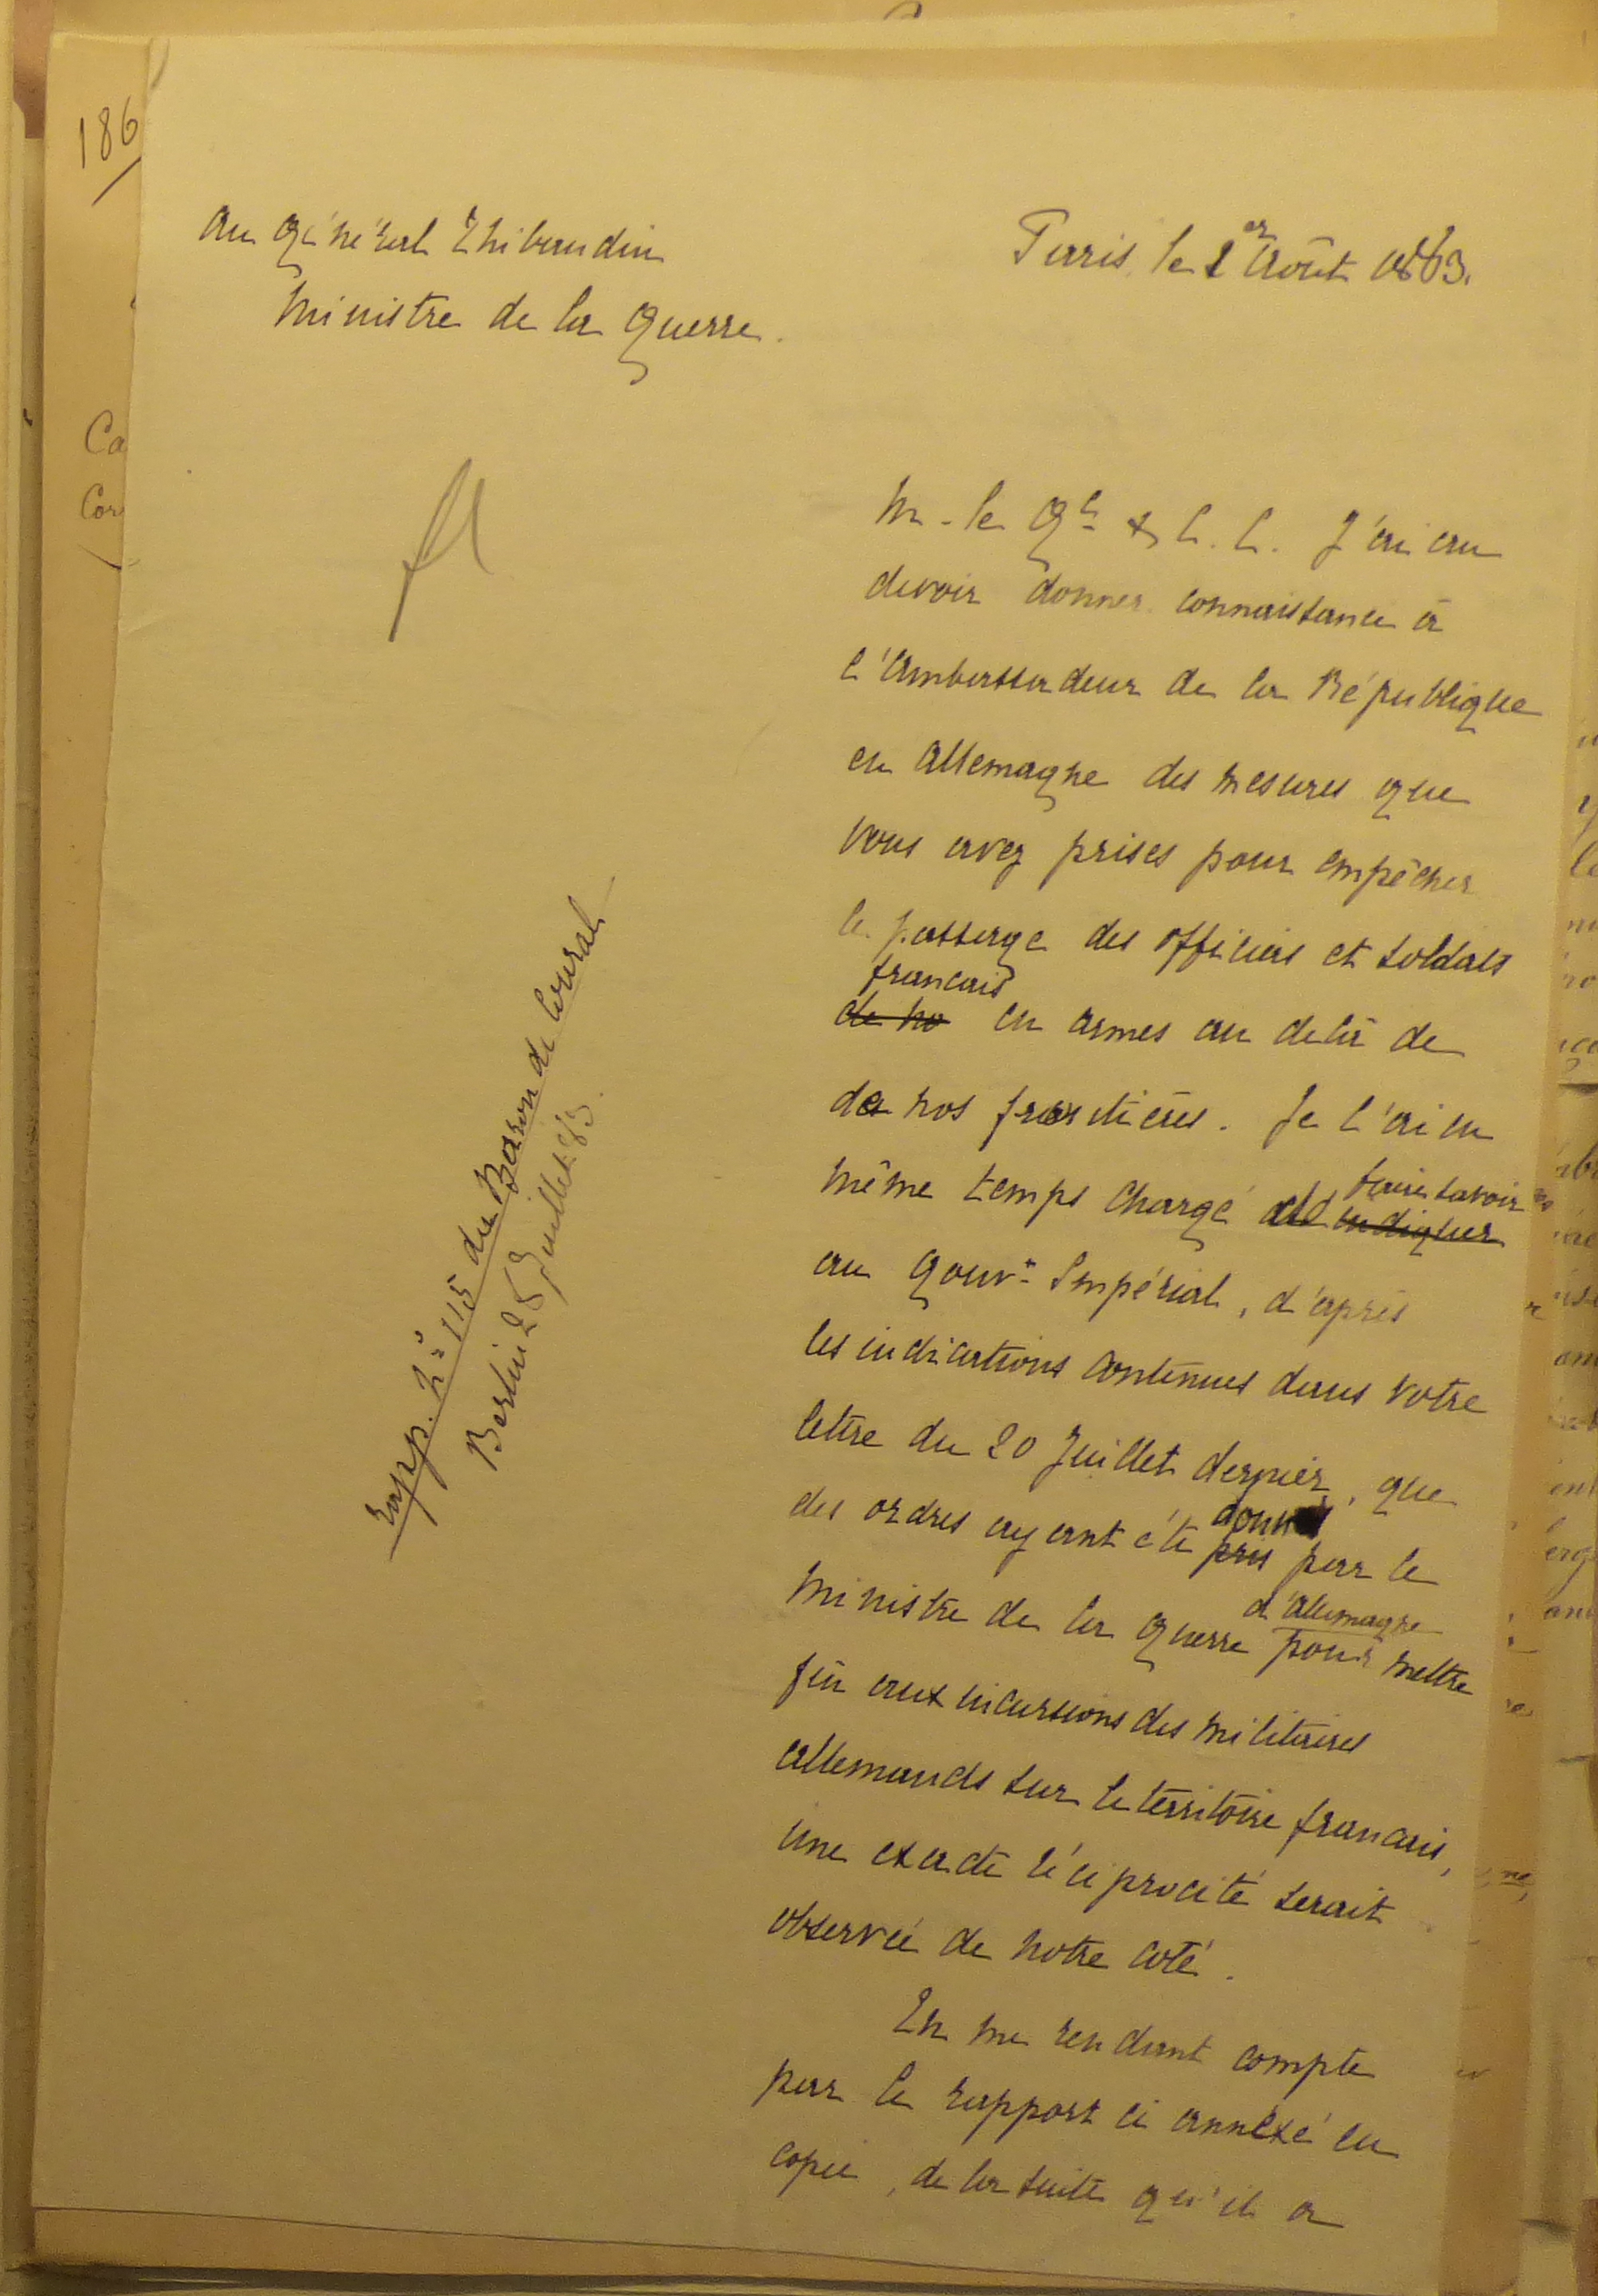 186
Au Général Thibaudin
Ministre de la Guerre.
Paris, le 1er Août 1883.
Ca
Cor
M. le Gal & C. C. J'ai cru
devoir donner connaissance à
l'Ambassadeur de la République
en Allemagne des mesures que
vous avez prises pour empêcher
le passage des officiers et soldats
français
de no en armes au delà de
de nos frontières. Je l'ai en
faire savoir
même temps chargé de indiquer
au Gouvt Impérial, d'après
les indications contenues dans votre
lettre du 20 Juillet dernier, que
donnés
des ordres ayant été pris par le
d'Allemagne
Ministre de la Guerre pour mettre
fin aux incursions des militaires
allemands sur le territoire français,
une exacte réciprocité serait
observée de notre coté.
En me rendant compte
par le rapport ci annexé en
copie, de la suite qu'il a
rapp. no 115 du Baron de Courcel
Berlin 28 Juillet 83.